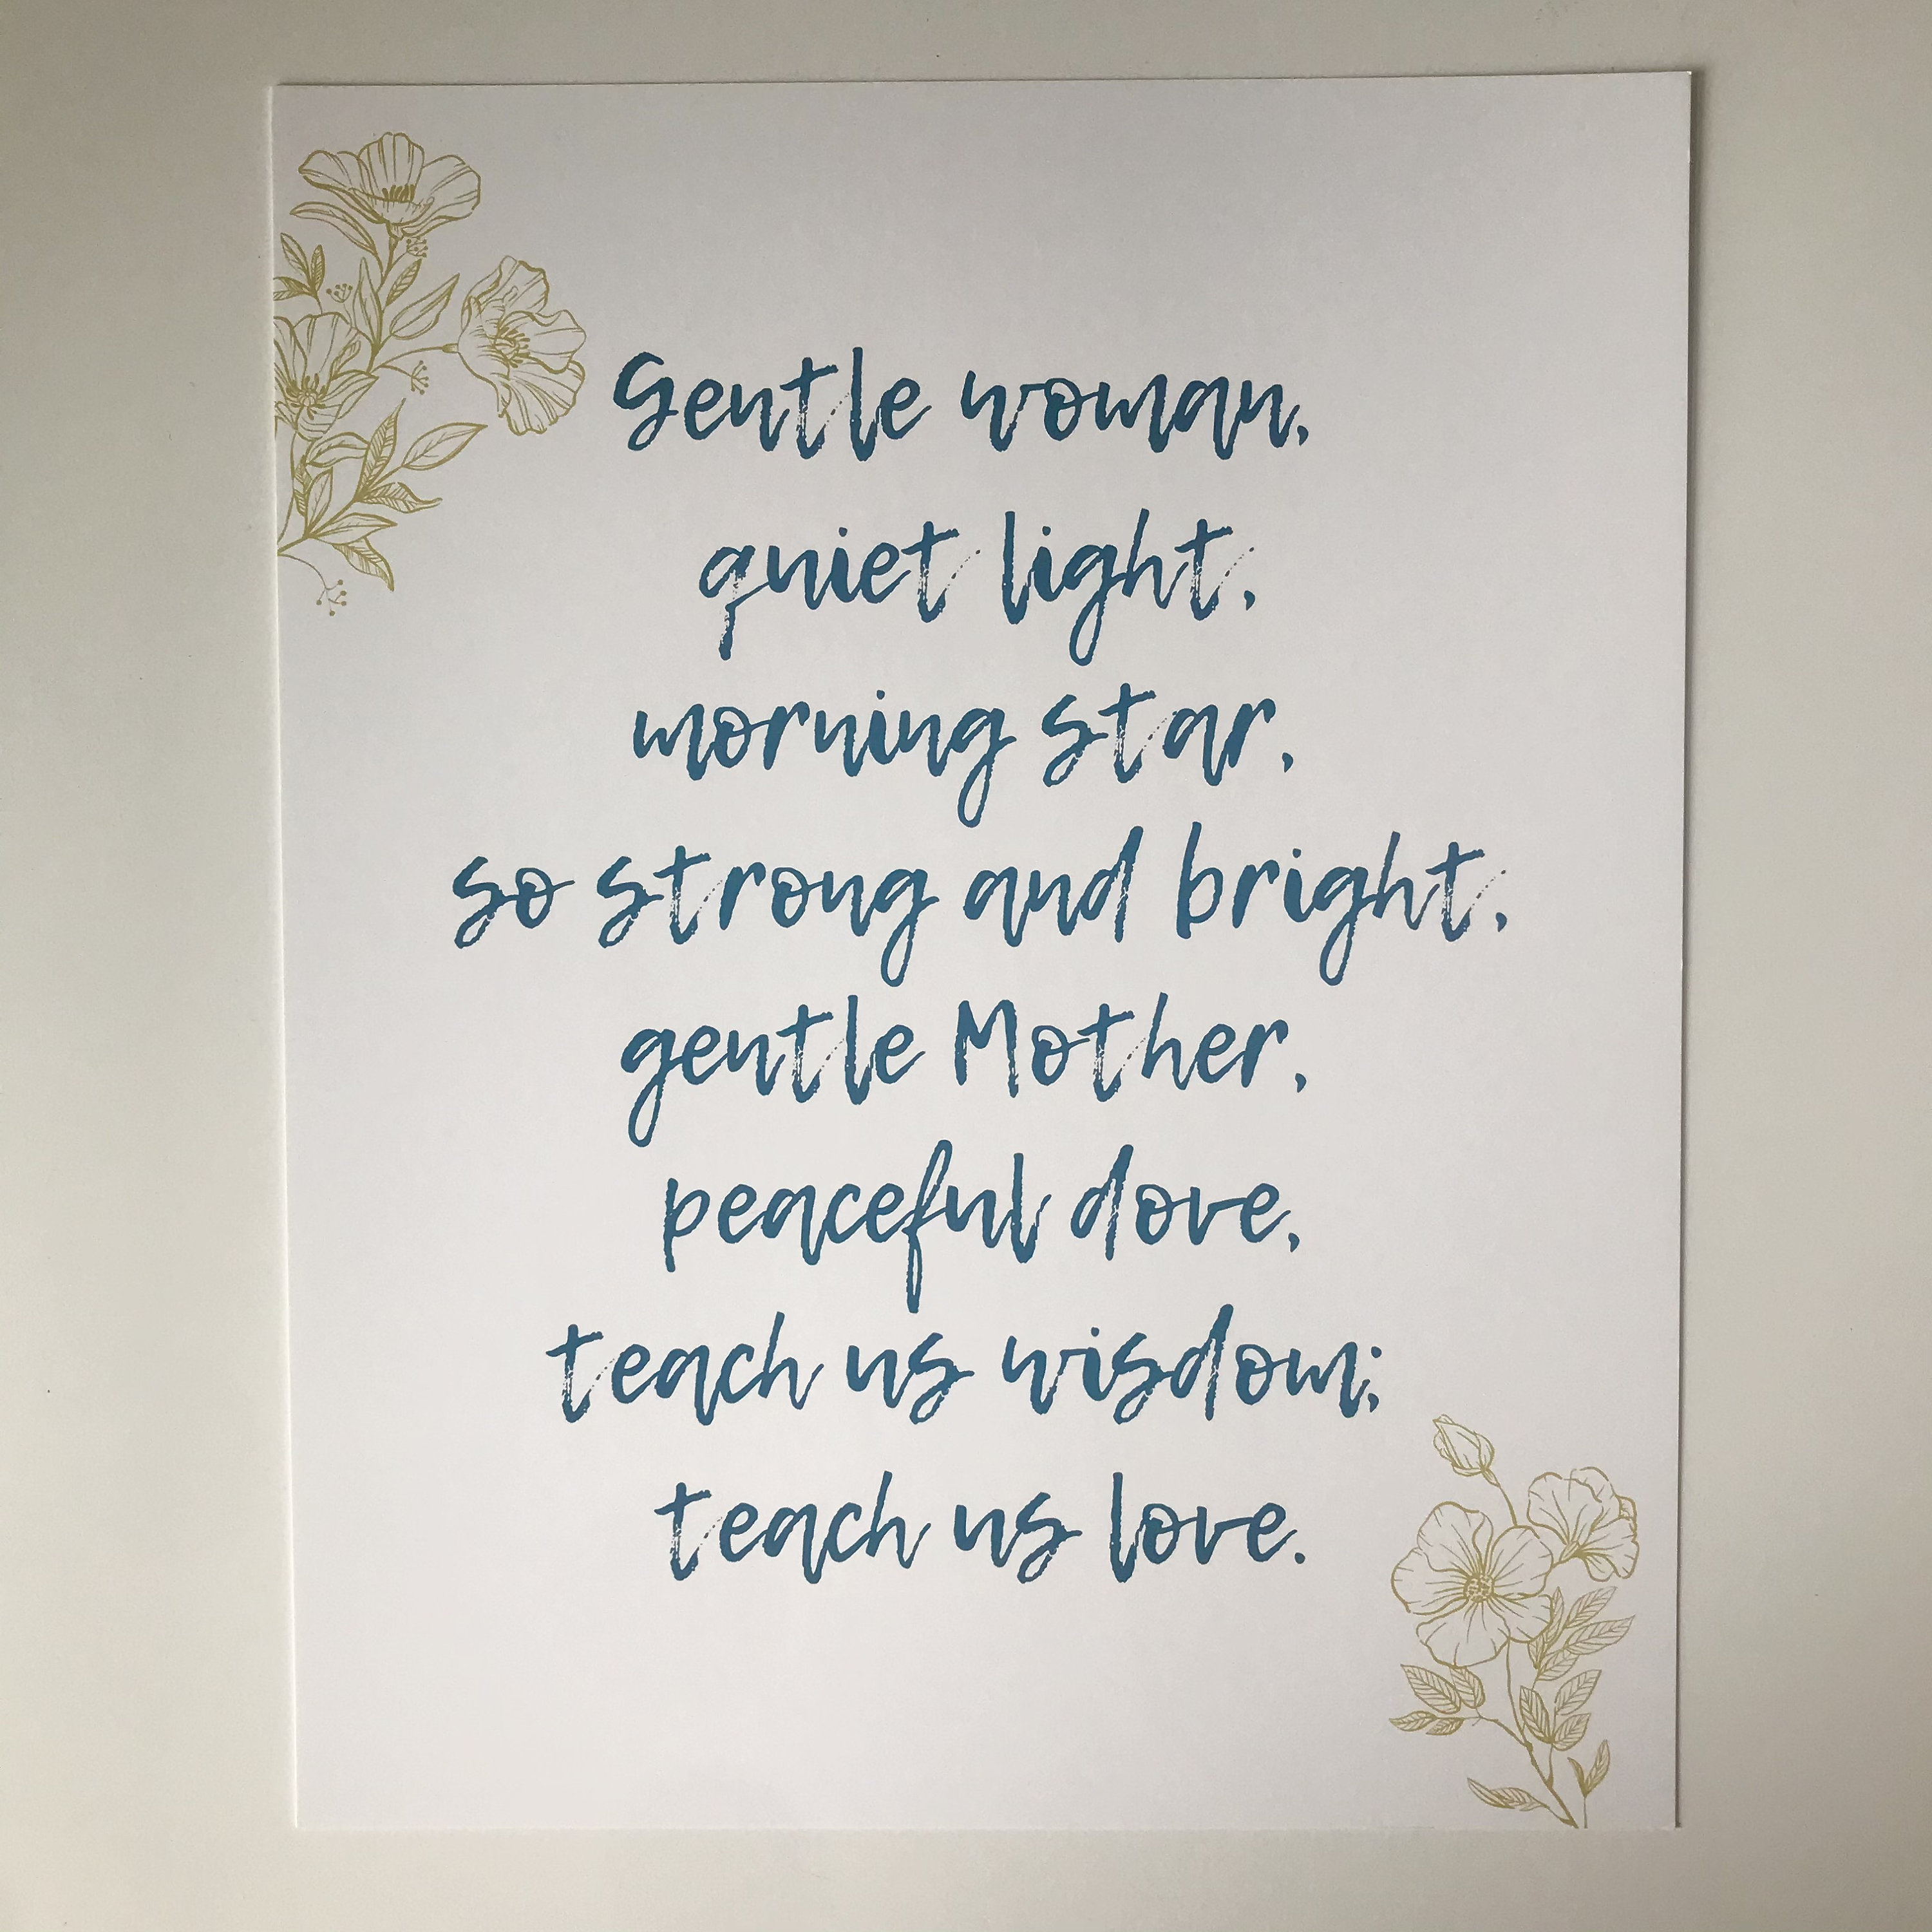 Gentle woman,
quiet light,
morning star,
so strong and bright,
gentle Mother,
peaceful dove,
teach us wisdom;
teach us love.